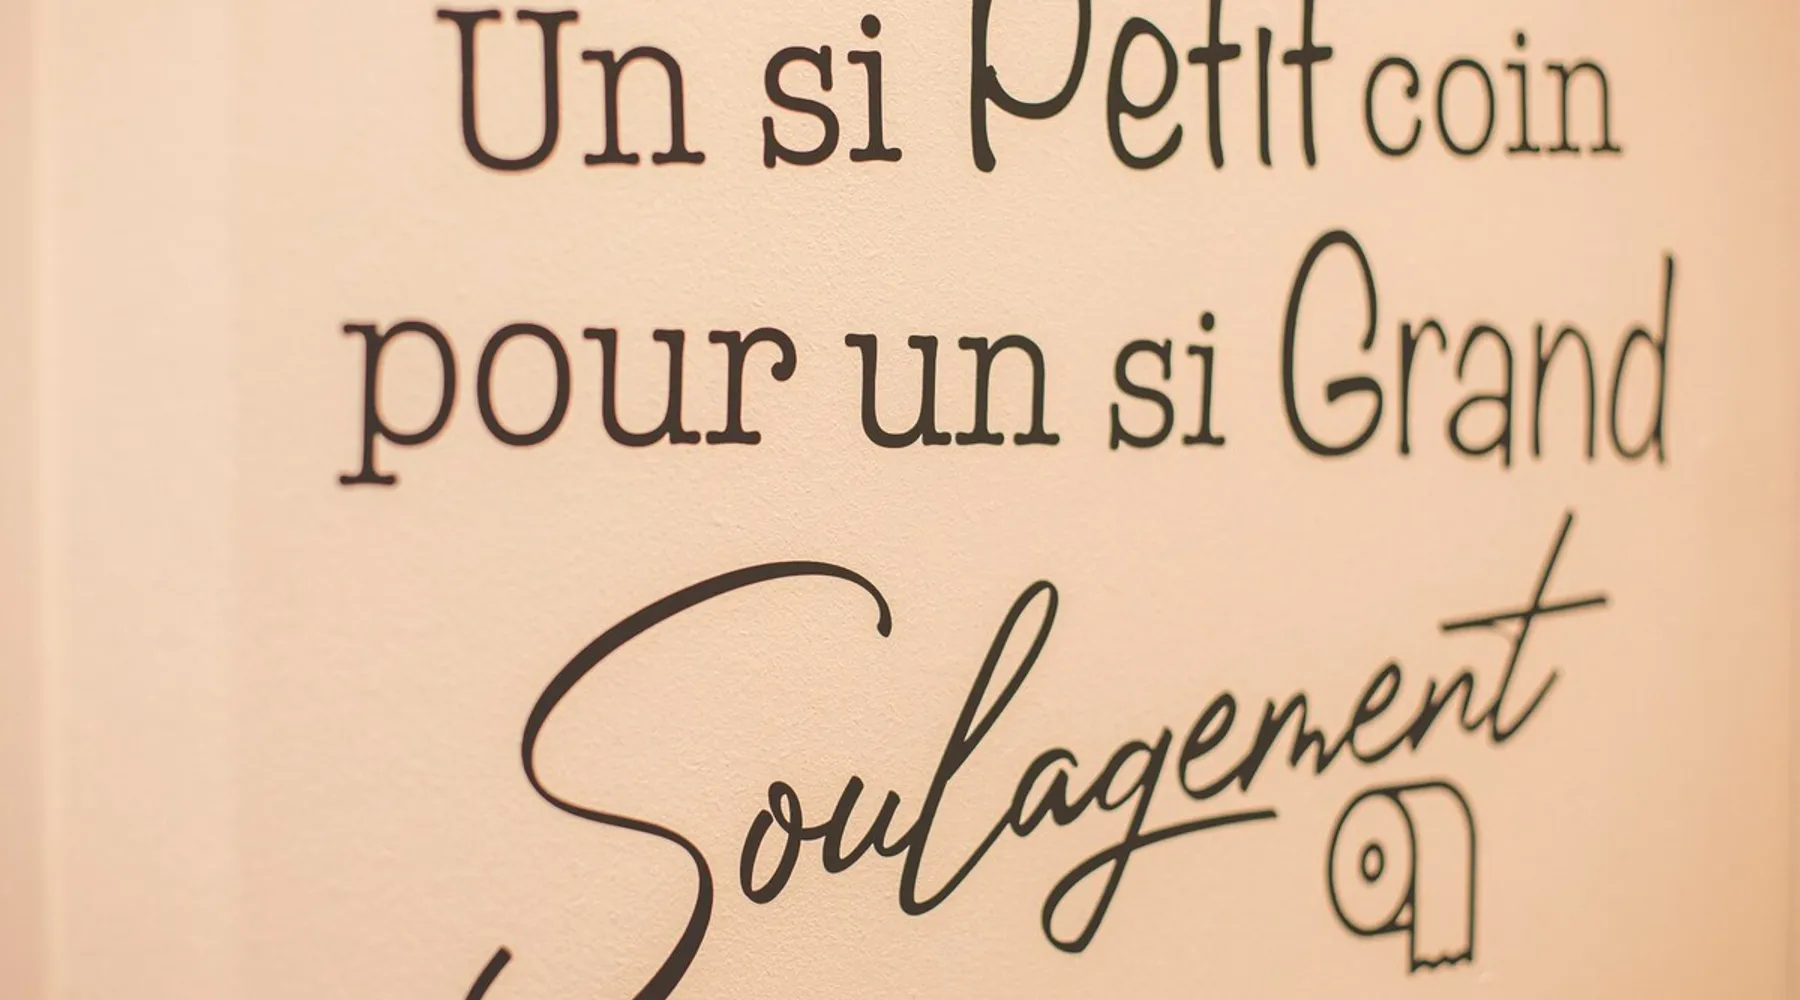 Un si Petit coin
pour un si Grand
Soulagement